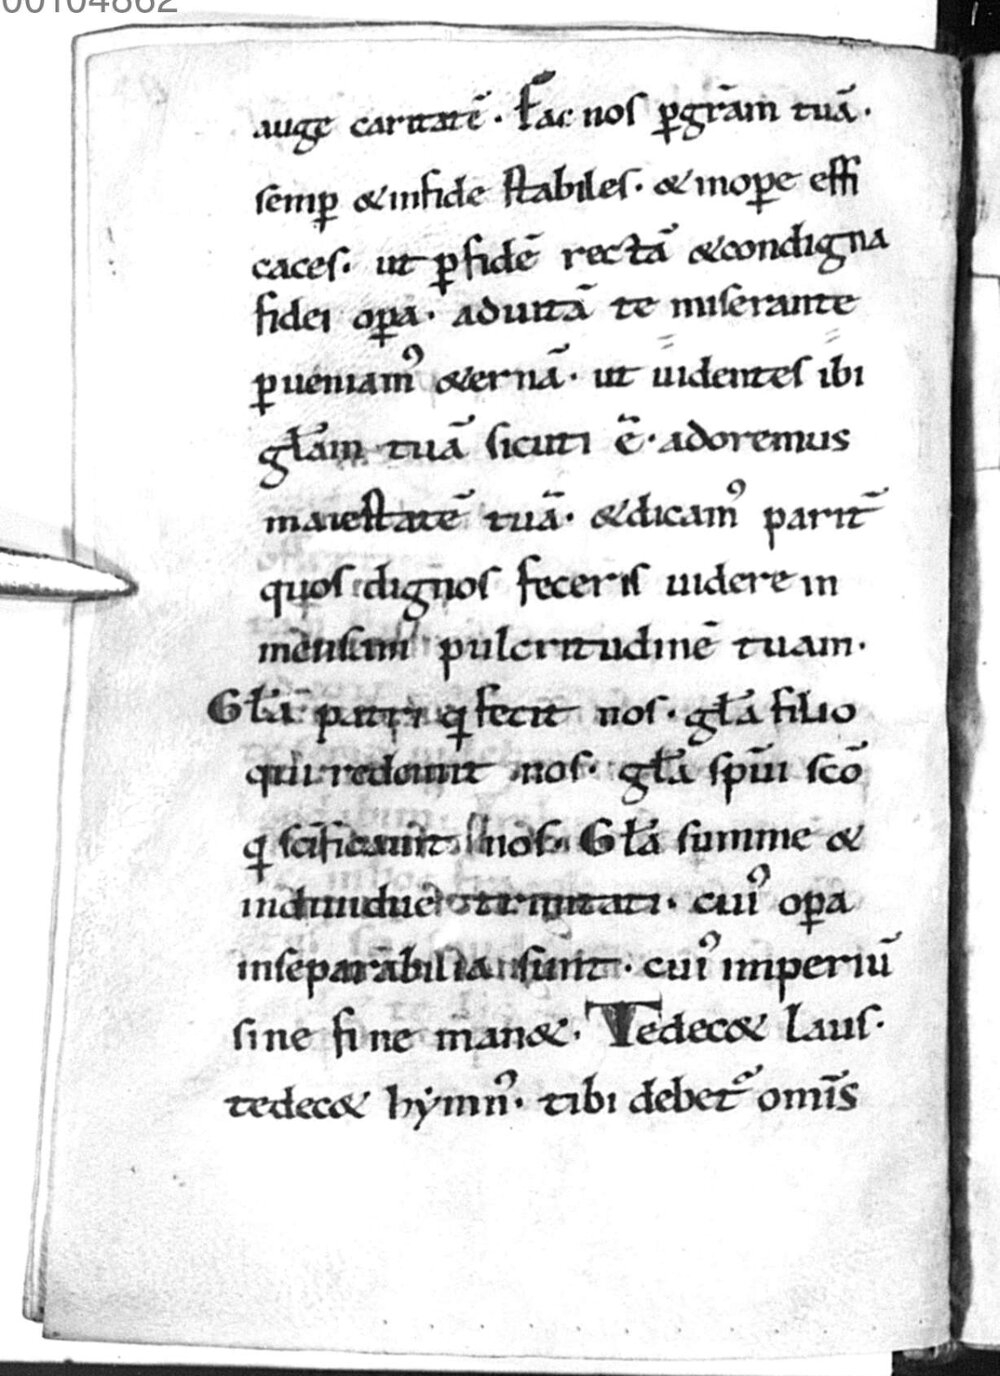 00104862
auge caritatē · Fac nos ꝑgr̄am tuā ·
semꝑ & infide stabiles · & inoꝑe effi
caces · ut ꝑ fidē rectā & condigna
fidei oꝑa · aduitā te miserante
ꝑueniamꝰ &ernā · ut uidentes ibi
gl̄am tuā sicuti ē · adoremus
maiestatē tuā · & dicamꝰ parit̄
quos dignos feceris uidere in
mensam pulcritudinē tuam ·
Gl̄a patri ꝗ fecit nos · gl̄a filio
qui redemit nos · gl̄a sp̄ui scō
ꝗ sc̄ificauit nos · Gl̄a summe &
indiuidue trinitati · cuiꝰ oꝑa
inseparabilia sunt · cuiꝰ imperiū
sine fine man& · Te dec& laus ·
te dec& hẏmnꝰ · tibi debet᷑ om̄is